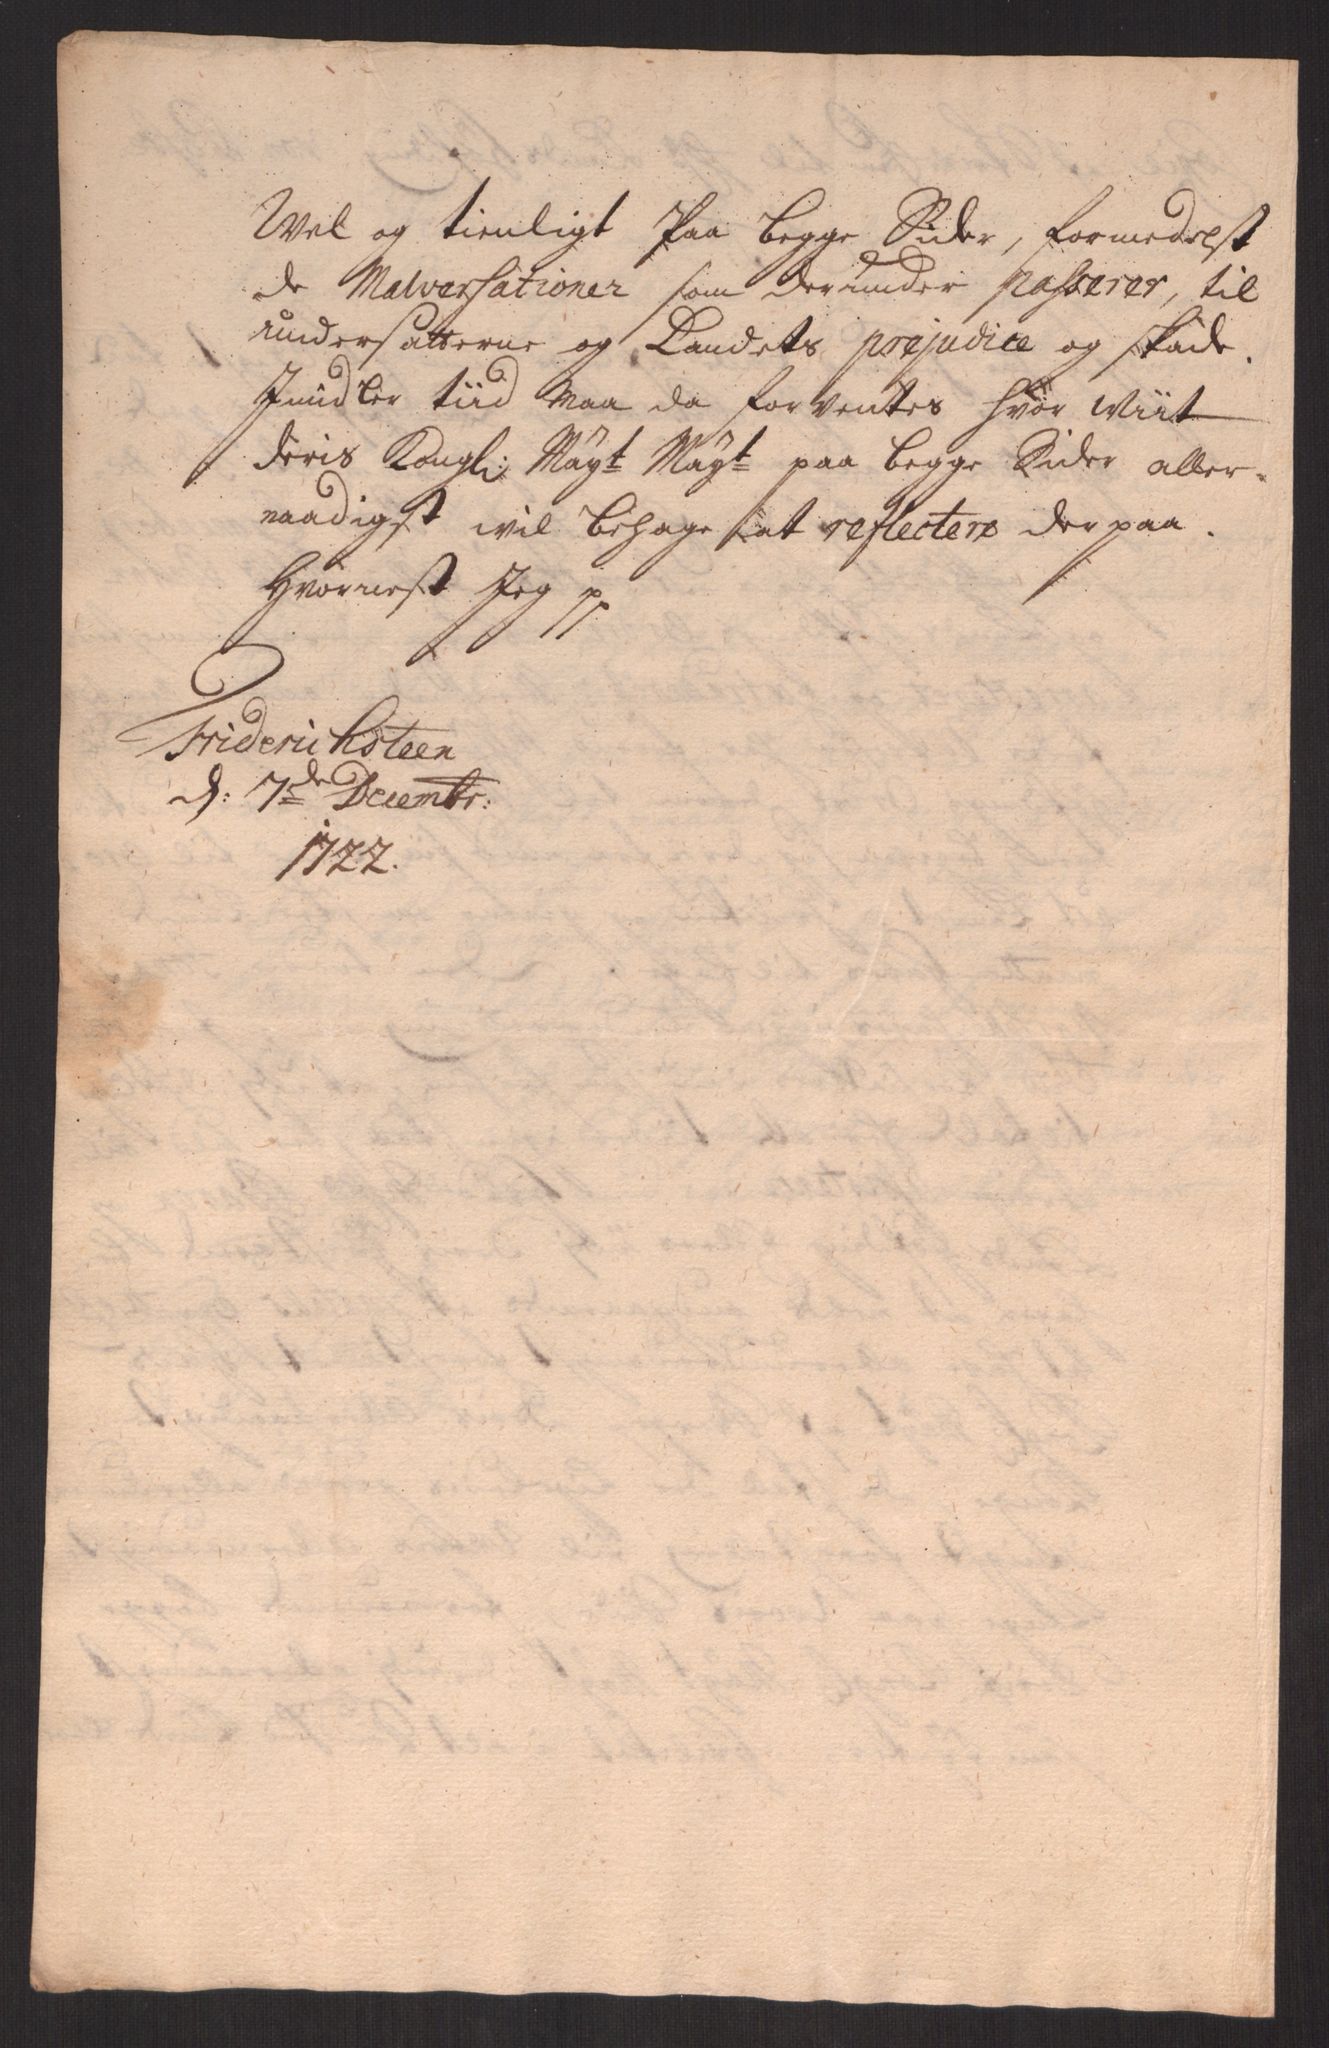 Wel og tienligt Paa begge Sider, formedelst
de Malversationer som derunder passerer, til
undersatterne og Landets prejudice og skade.
Jmidler tiid Maa da forventes hvor wiit
deris Kongl: Mayt: Mayt: paa begge Sider aller-
naadigst wil behage at reflectere derpaa.
Hvornest Jeg pp
Friderichsteen
d: 7de Decembr:
1722.